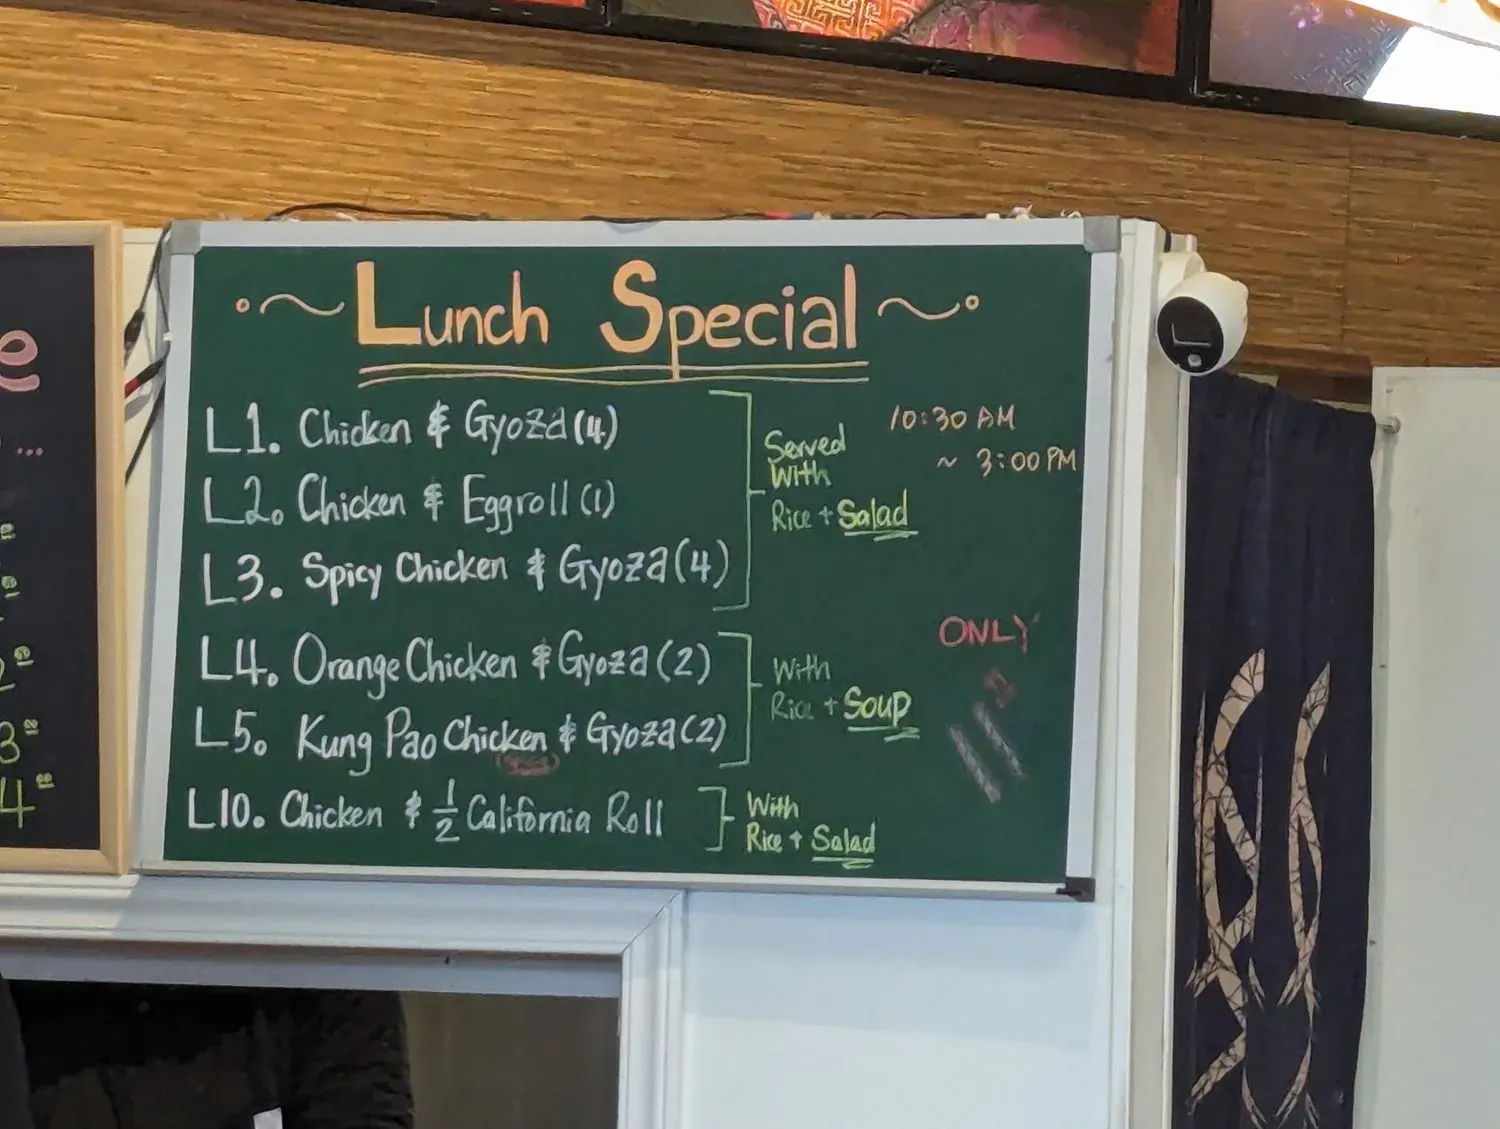 Lunch Special
L1. Chicken & Gyoza (4)
L2. Chicken & Eggroll (1)
L3. Spicy Chicken & Gyoza (4)
Served
With
Rice + Salad
10:30 AM
~ 3:00 PM
L4. Orange Chicken & Gyoza (2)
L5. Kung Pao Chicken & Gyoza (2)
With
Rice + Soup
ONLY
L10. Chicken & 1/2 California Roll
With
Rice + Salad